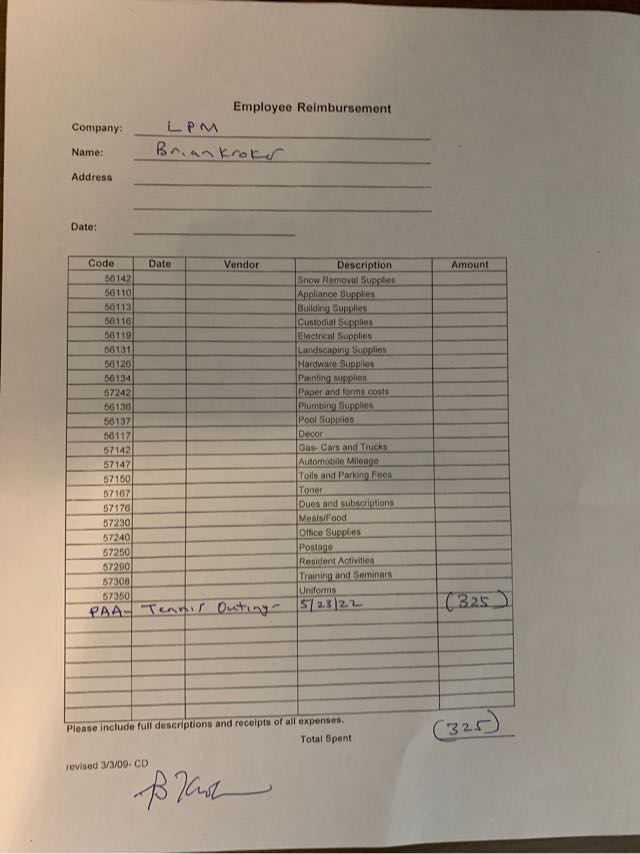 Employee Reimbursement
Company: LPM
Name: Brian Kroker
Address
Date:
Code Date Vendor Description Amount
56142 Snow Removal Supplies
56110 Appliance Supplies
56113 Building Supplies
56116 Custodial Supplies
56119 Electrical Supplies
56131 Landscaping Supplies
56126 Hardware Supplies
56134 Painting supplies
57242 Paper and forms costs
56136 Plumbing Supplies
56137 Pool Supplies
56117 Décor
57142 Gas- Cars and Trucks
57147 Automobile Mileage
57150 Tolls and Parking Fees
57167 Toner
57176 Dues and subscriptions
57230 Meals/Food
57240 Office Supplies
57250 Postage
57290 Resident Activities
57308 Training and Seminars
57350 Uniforms
PAA- Tennis Outing- 5/23/22 (325)
Please include full descriptions and receipts of all expenses.
Total Spent (325)
revised 3/3/09- CD